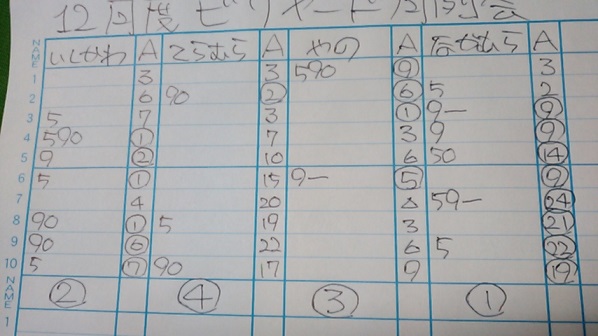 12回
NAME いしかわ A こうむら A やの A なかむら A
1 3 3 590 ⑨ 3
2 6 90 ② ⑥ 5 2
3 5 7 3 ① 9- ⑨
4 590 ① 7 3 9 ⑨
5 9 ② 10 6 50 ⑭
6 5 ① 15 9- ⑤ ⑨
7 4 20 59- ㉔
8 90 ① 5 19 3 ㉑
9 90 ⑥ 22 6 5 ㉒
10 5 ⑦ 90 17 9 ⑲
NAME ② ④ ③ ①
1